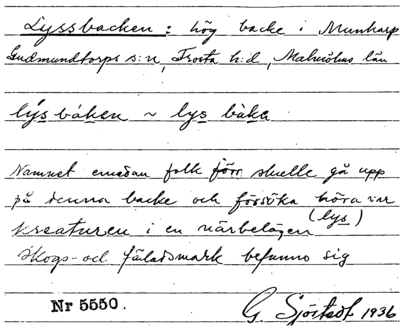 Lyssbacken : hög backe i Munkarp
Gudmundtorps s:n, Frosta h:d, Malmöhus län
lýs bàken ~ lys bàka
Namnet emedan folk förr skulle gå upp
på denna backe och försöka höra var
(lys)
kreaturen i en närbelägen
skogs- och fäladsmark befunno sig
Nr 5550.
G Sjöstedt 1936